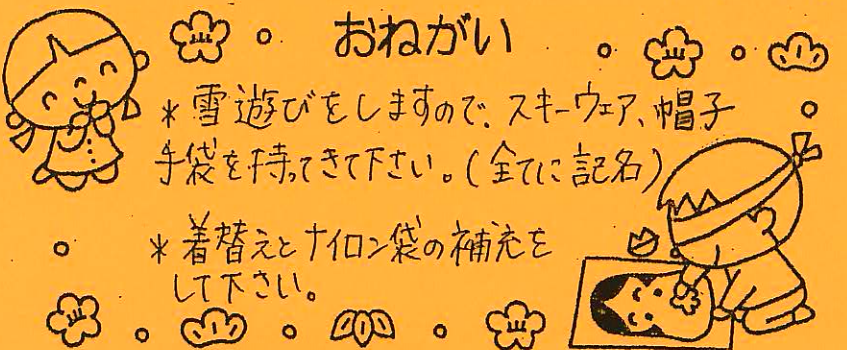 おねがい
*雪遊びをしますので、スキーウェア、帽子
手袋を持ってきて下さい。(全てに記名)
*着替えとナイロン袋の補充を
して下さい。